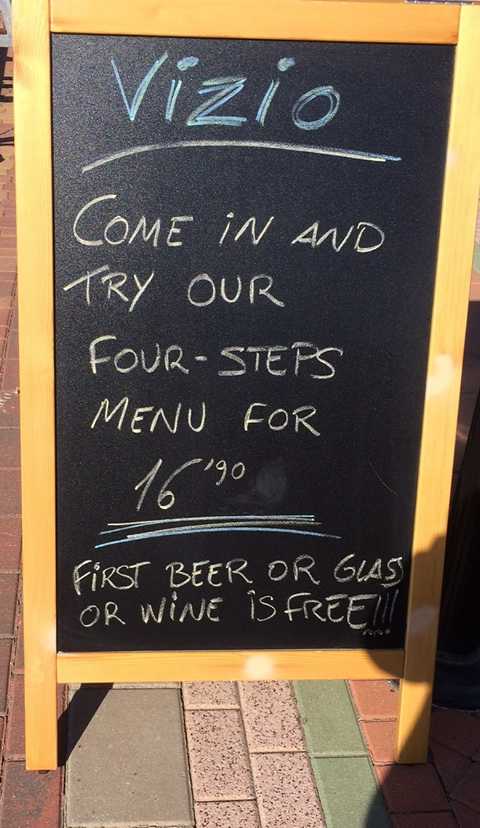 Vizio
COME iN AND
TRY OUR
FOUR-STEPS
MENU FOR
16'90
FiRST BEER OR GLASS
OR WiNE iS FREE!!!